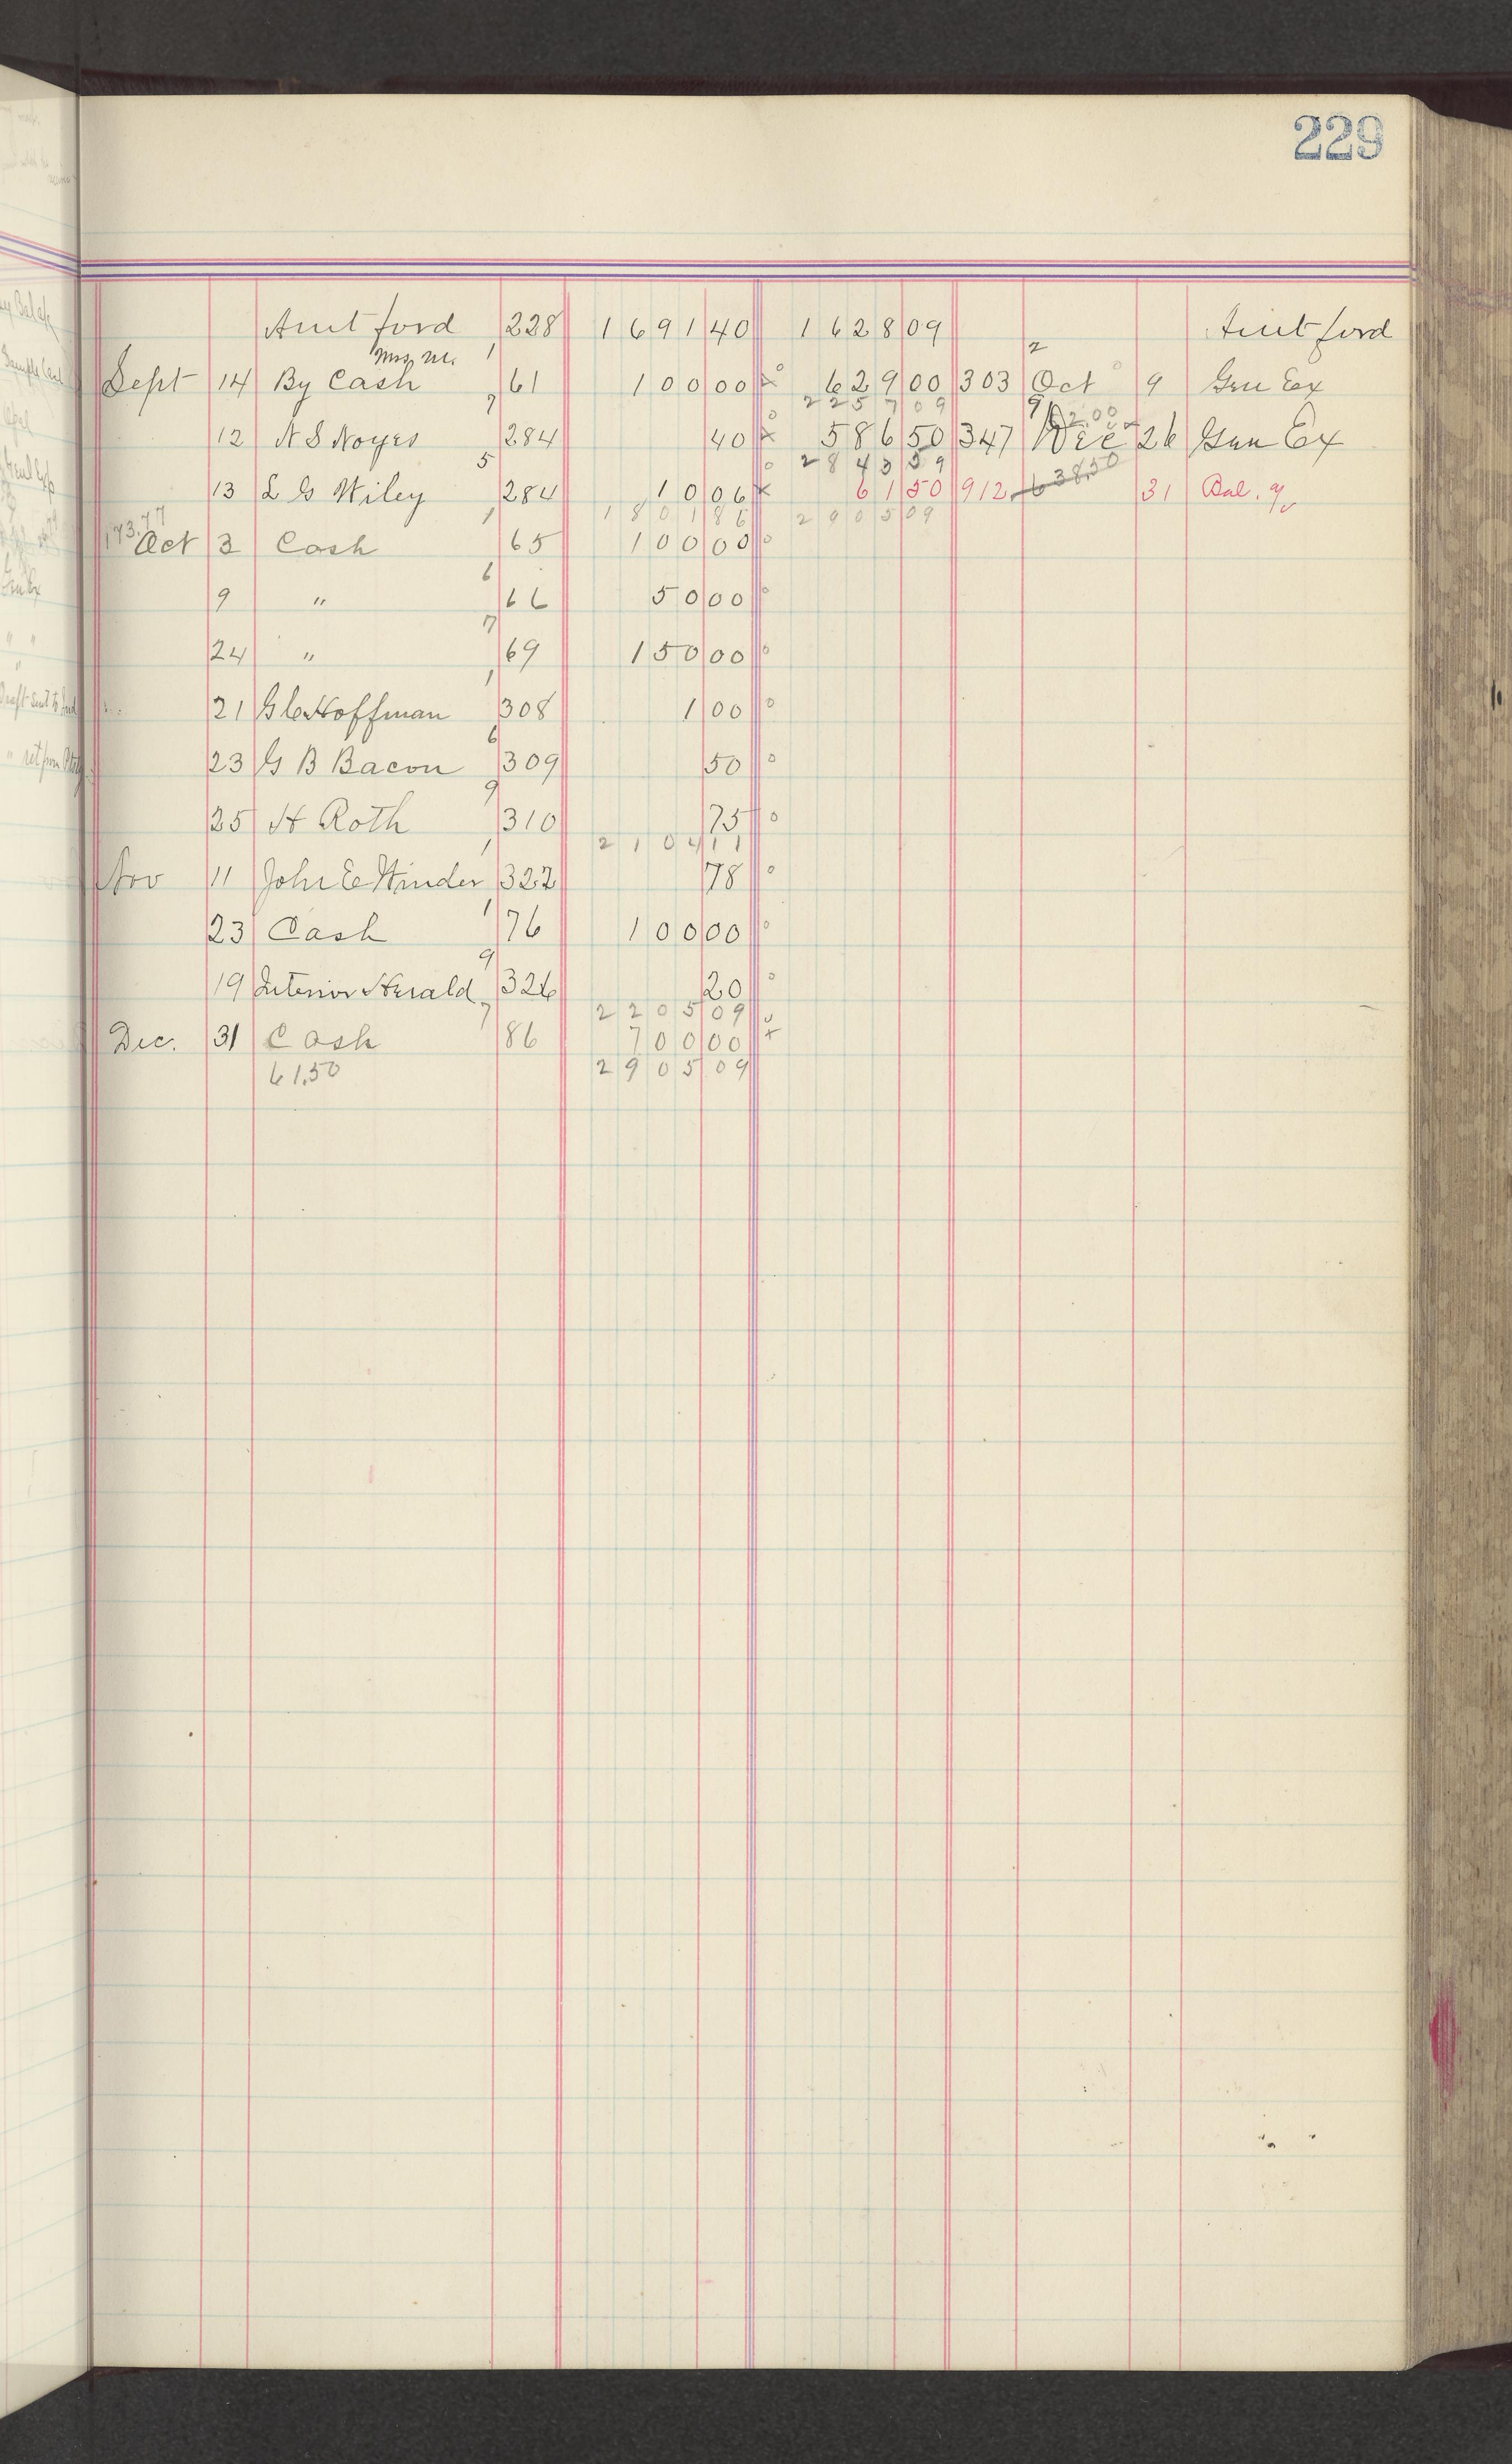 229
Amt ford 228 1691 40 1628 09 Amt ford
Mrs. M. 1 2
Sept 14 By Cash 61 100 00 x 629 00 303 Oct 9 Gen Ex
7 2257 09 9 62.00
12 N S Noyes 284 40 x 586 50 347 Dec 26 Gen Ex
5 2843 59 638.50
13 L G Wiley 284 10 06 x 61 50 912 31 Bal.
173.77 1 1801 86 2905 09
Oct 3 Cash 65 100 00
6
9 " 66 50 00
7
24 " 69 150 00
1
21 G C Hoffman 308 1 00
6
23 G B Bacon 309 50
9
25 H Roth 310 75
1 2104 11
Nov 11 John E Winder 322 78
1
23 Cash 76 100 00
9
19 Interior Herald 326 20
7 2205 09
Dec. 31 Cash 86 700 00 x
61.50 2905 09